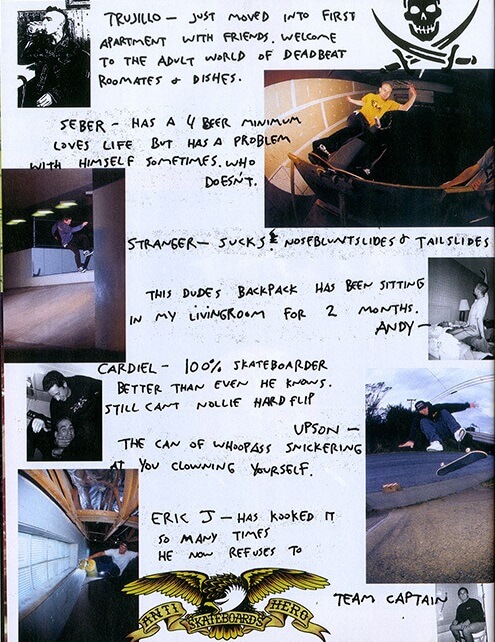 TRUJILLO – JUST MOVED INTO FIRST
APARTMENT WITH FRIENDS. WELCOME
TO THE ADULT WORLD OF DEADBEAT
ROOMATES & DISHES.
SEBER – HAS A 4 BEER MINIMUM
LOVES LIFE BUT HAS A PROBLEM
WITH HIMSELF SOMETIMES. WHO
DOESN'T.
STRANGER – SUCKS! NOSEBLUNTSLIDES & TAILSLIDES
THIS DUDES BACKPACK HAS BEEN SITTING
IN MY LIVINGROOM FOR 2 MONTHS.
ANDY –
CARDIEL – 100% SKATEBOARDER
BETTER THAN EVEN HE KNOWS.
STILL CANT NOLLIE HARDFLIP
UPSON –
THE CAN OF WHOOPASS SNICKERING
AT YOU CLOWNING YOURSELF.
ERIC J – HAS KOOKED IT
SO MANY TIMES
HE NOW REFUSES TO
TEAM CAPTAIN
ANTI HERO
SKATEBOARDS